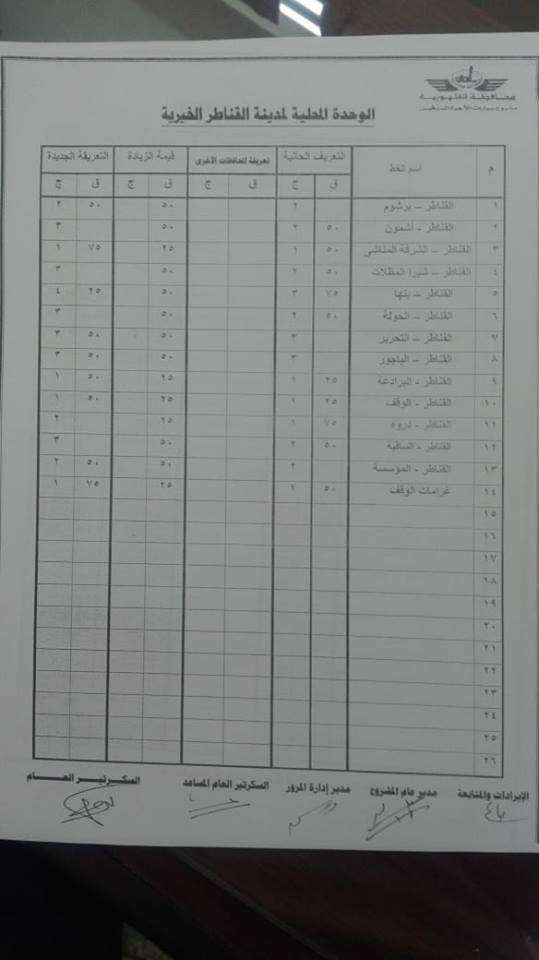 محافظة القليوبية
الوحدة المحلية لمدينة القناطر الخيرية
م اسم الخط التعريف الحالية تعريفة المحافظات الأخرى قيمة الزيادة التعريفة الجديدة
ق ج ق ج ق ج ق ج
١ القناطر – برشوم ٢ ٥٠ ٥٠ ٢
٢ القناطر - أشمون ٥٠ ٢ ٥٠ ٣
٣ القناطر – الشرفة المناشي ٥٠ ١ ٢٥ ٧٥ ١
٤ القناطر – شبرا المظلات ٥٠ ٢ ٥٠ ٣
٥ القناطر – بنها ٧٥ ٣ ٥٠ ٢٥ ٤
٦ القناطر – الحولة ٥٠ ٢ ٥٠ ٣
٧ القناطر – التحرير ٣ ٥٠ ٥٠ ٣
٨ القناطر - الباجور ٣ ٥٠ ٥٠ ٣
٩ القناطر – البرادعة ٢٥ ١ ٢٥ ٥٠ ١
١٠ القناطر – الوقف ٢٥ ١ ٢٥ ٥٠ ١
١١ القناطر – دروه ٧٥ ١ ٢٥ ٢
١٢ القناطر - الساقية ٥٠ ٢ ٥٠ ٣
١٣ القناطر – المؤسسة ٢ ٥٠ ٥٠ ٢
١٤ غرامات الوقف ٥٠ ١ ٢٥ ٧٥ ١
١٥
١٦
١٧
١٨
١٩
٢٠
٢١
٢٢
٢٣
٢٤
٢٥
٢٦
الإيرادات والمتابعة مدير عام المشروع مدير إدارة المرور السكرتير العام المساعد السكرتير العام